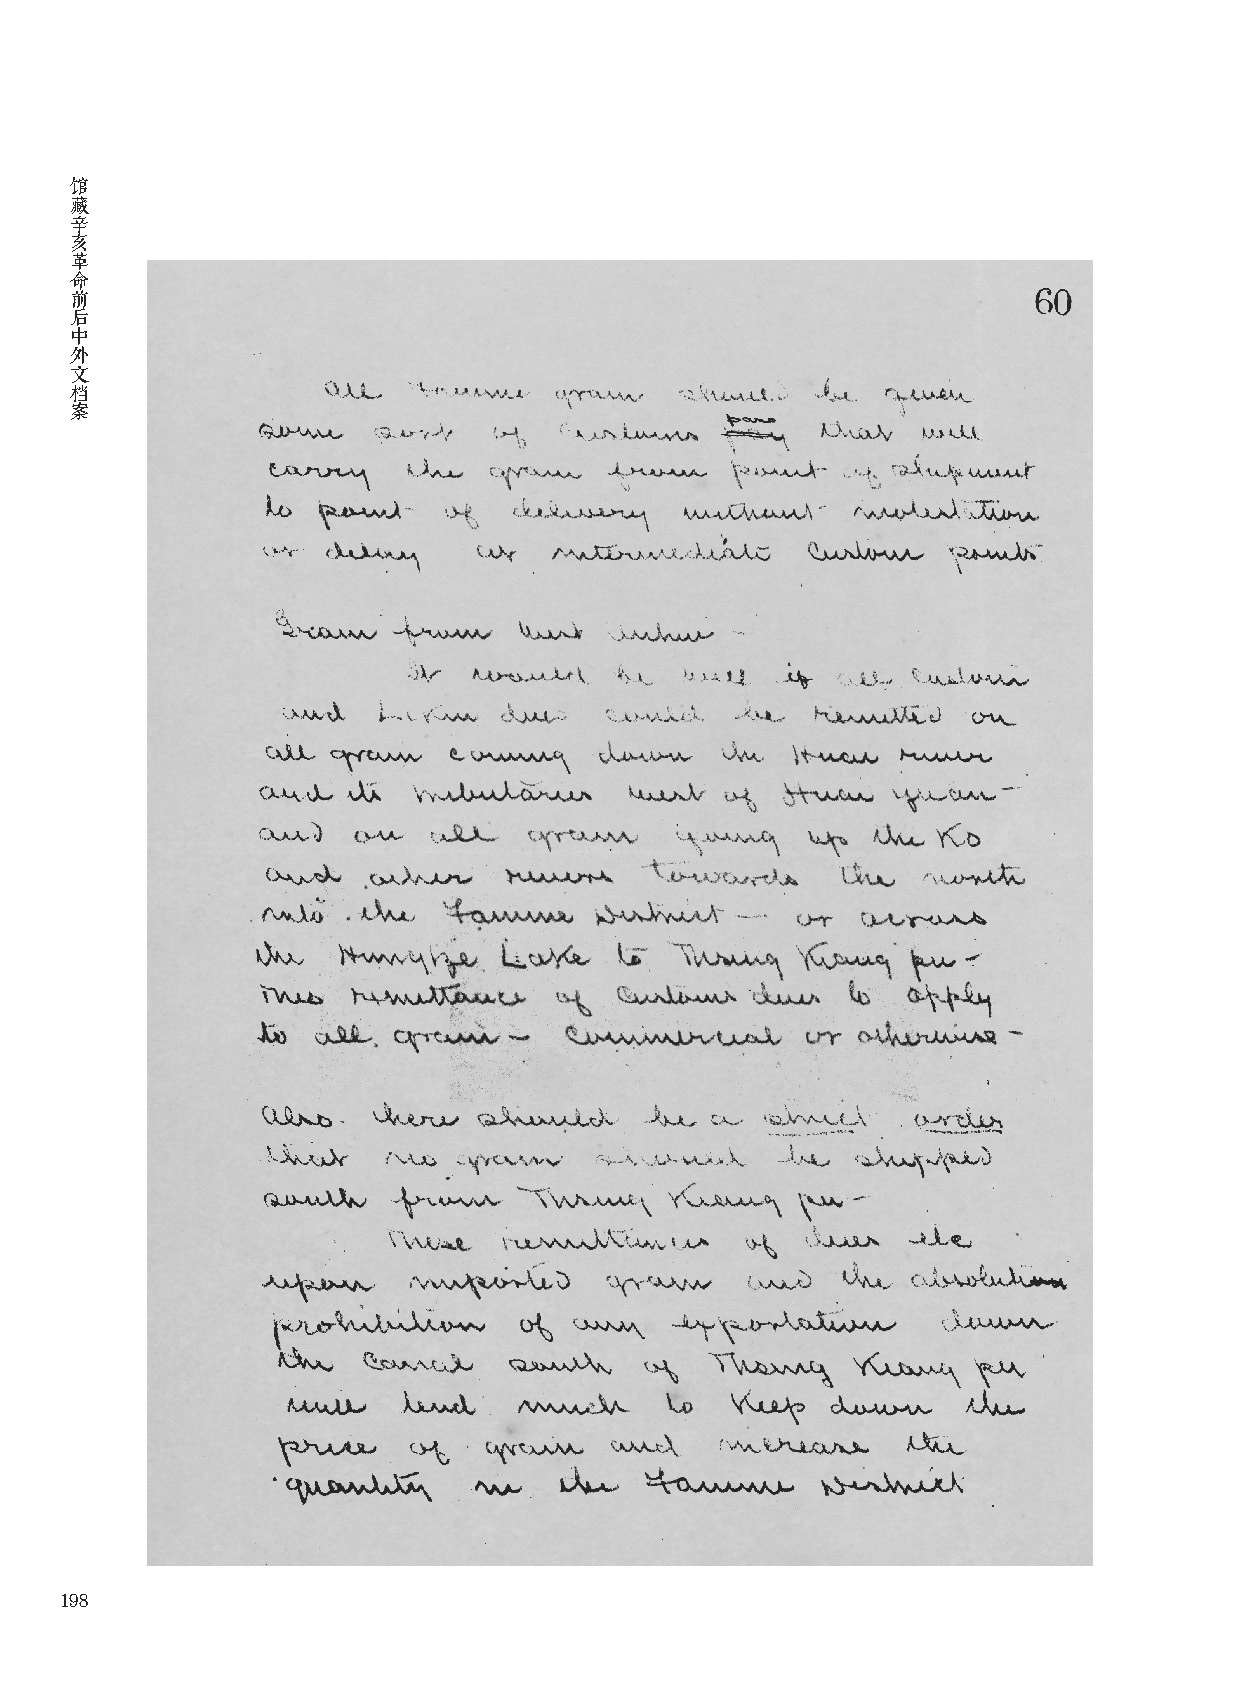 馆藏辛亥革命前后中外文档案
60
all Famine grain should be given
some sort of Customs pass that will
carry the grain from point of shipment
to point of delivery without molestation
or delay at intermediate Custom points
Grain from West Anhui -
It would be well if all Custom
and Likin dues could be remitted on
all grain coming down the Huai river
and its tributaries west of Huai Yuan -
and on all grain going up the Ko
and other rivers towards the north
into the Famine District - or across
the Hungtze Lake to Thsing Kiang pu -
This remittance of Customs dues to apply
to all grain - Commercial or otherwise -
Also there should be a strict order
that no grain should be shipped
south from Thsing Kiang pu -
These remittances of dues etc
upon imported grain and the absolute
prohibition of any exportation down
the Canal south of Thsing Kiang pu
will tend much to keep down the
price of grain and increase the
quantity in the Famine District
198